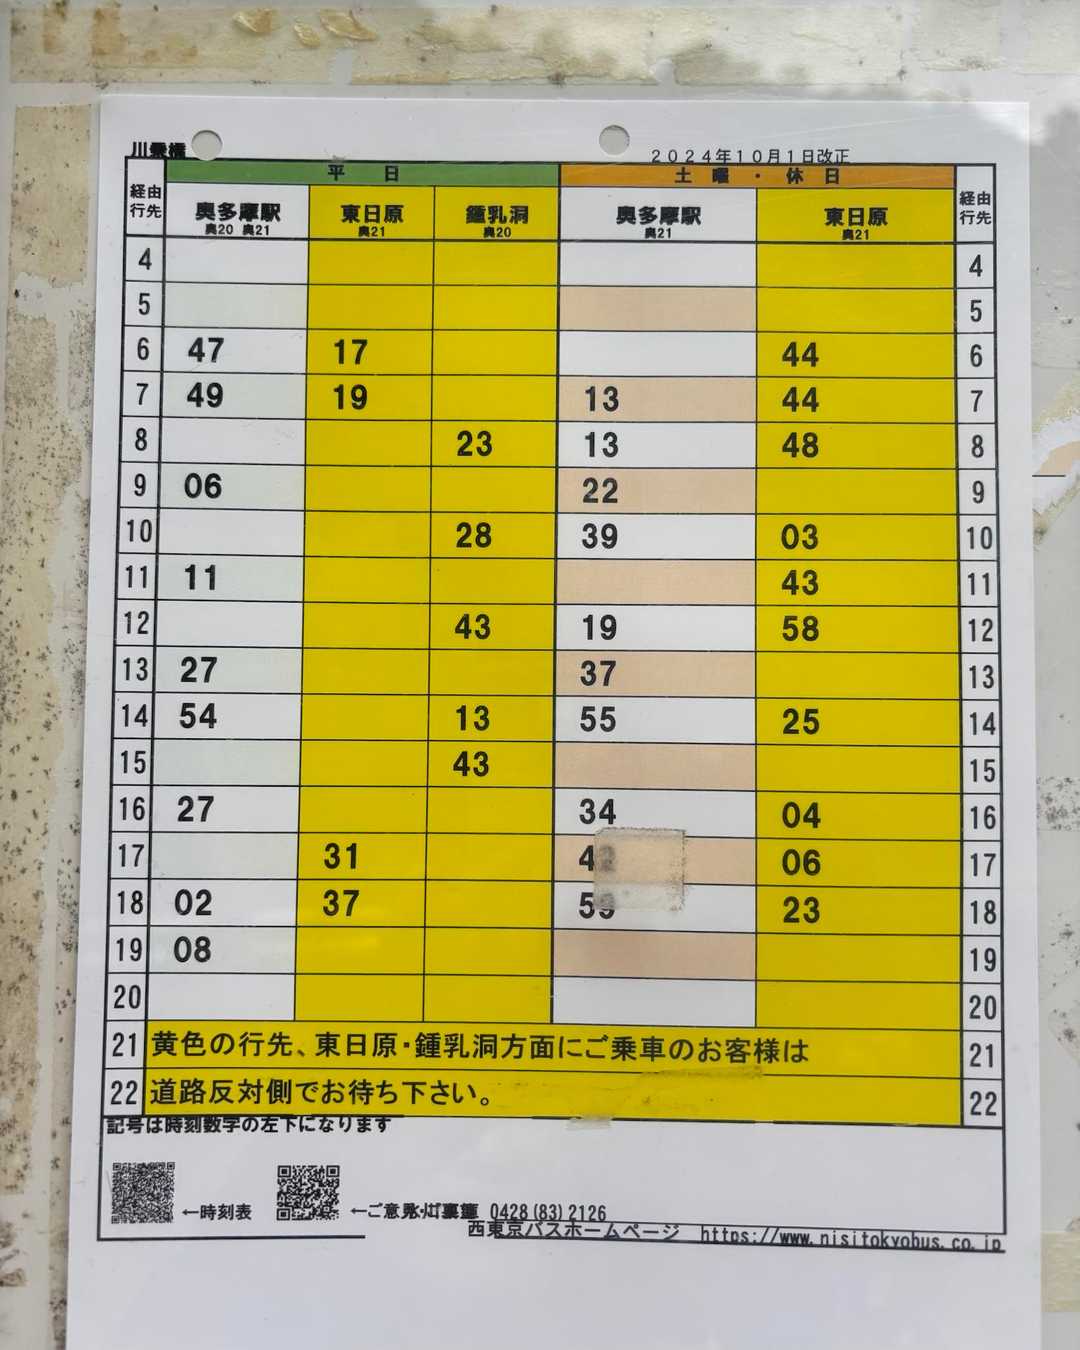 川乗橋
2024年10月1日改正
平 日 土 曜 ・ 休 日
経由 行先 奥多摩駅 奥20 奥21 東日原 奥21 鍾乳洞 奥20 奥多摩駅 奥21 東日原 奥21 経由 行先
4 4
5 5
6 47 17 44 6
7 49 19 13 44 7
8 23 13 48 8
9 06 22 9
10 28 39 03 10
11 11 43 11
12 43 19 58 12
13 27 37 13
14 54 13 55 25 14
15 43 15
16 27 34 04 16
17 31 06 17
18 02 37 59 23 18
19 08 19
20 20
21 黄色の行先、東日原・鍾乳洞方面にご乗車のお客様は 21
22 道路反対側でお待ち下さい。 22
記号は時刻数字の左下になります
←時刻表 ←ご意見・ 0428(83)2126
西東京バスホームページ https://www.nisitokyobus.co.jp